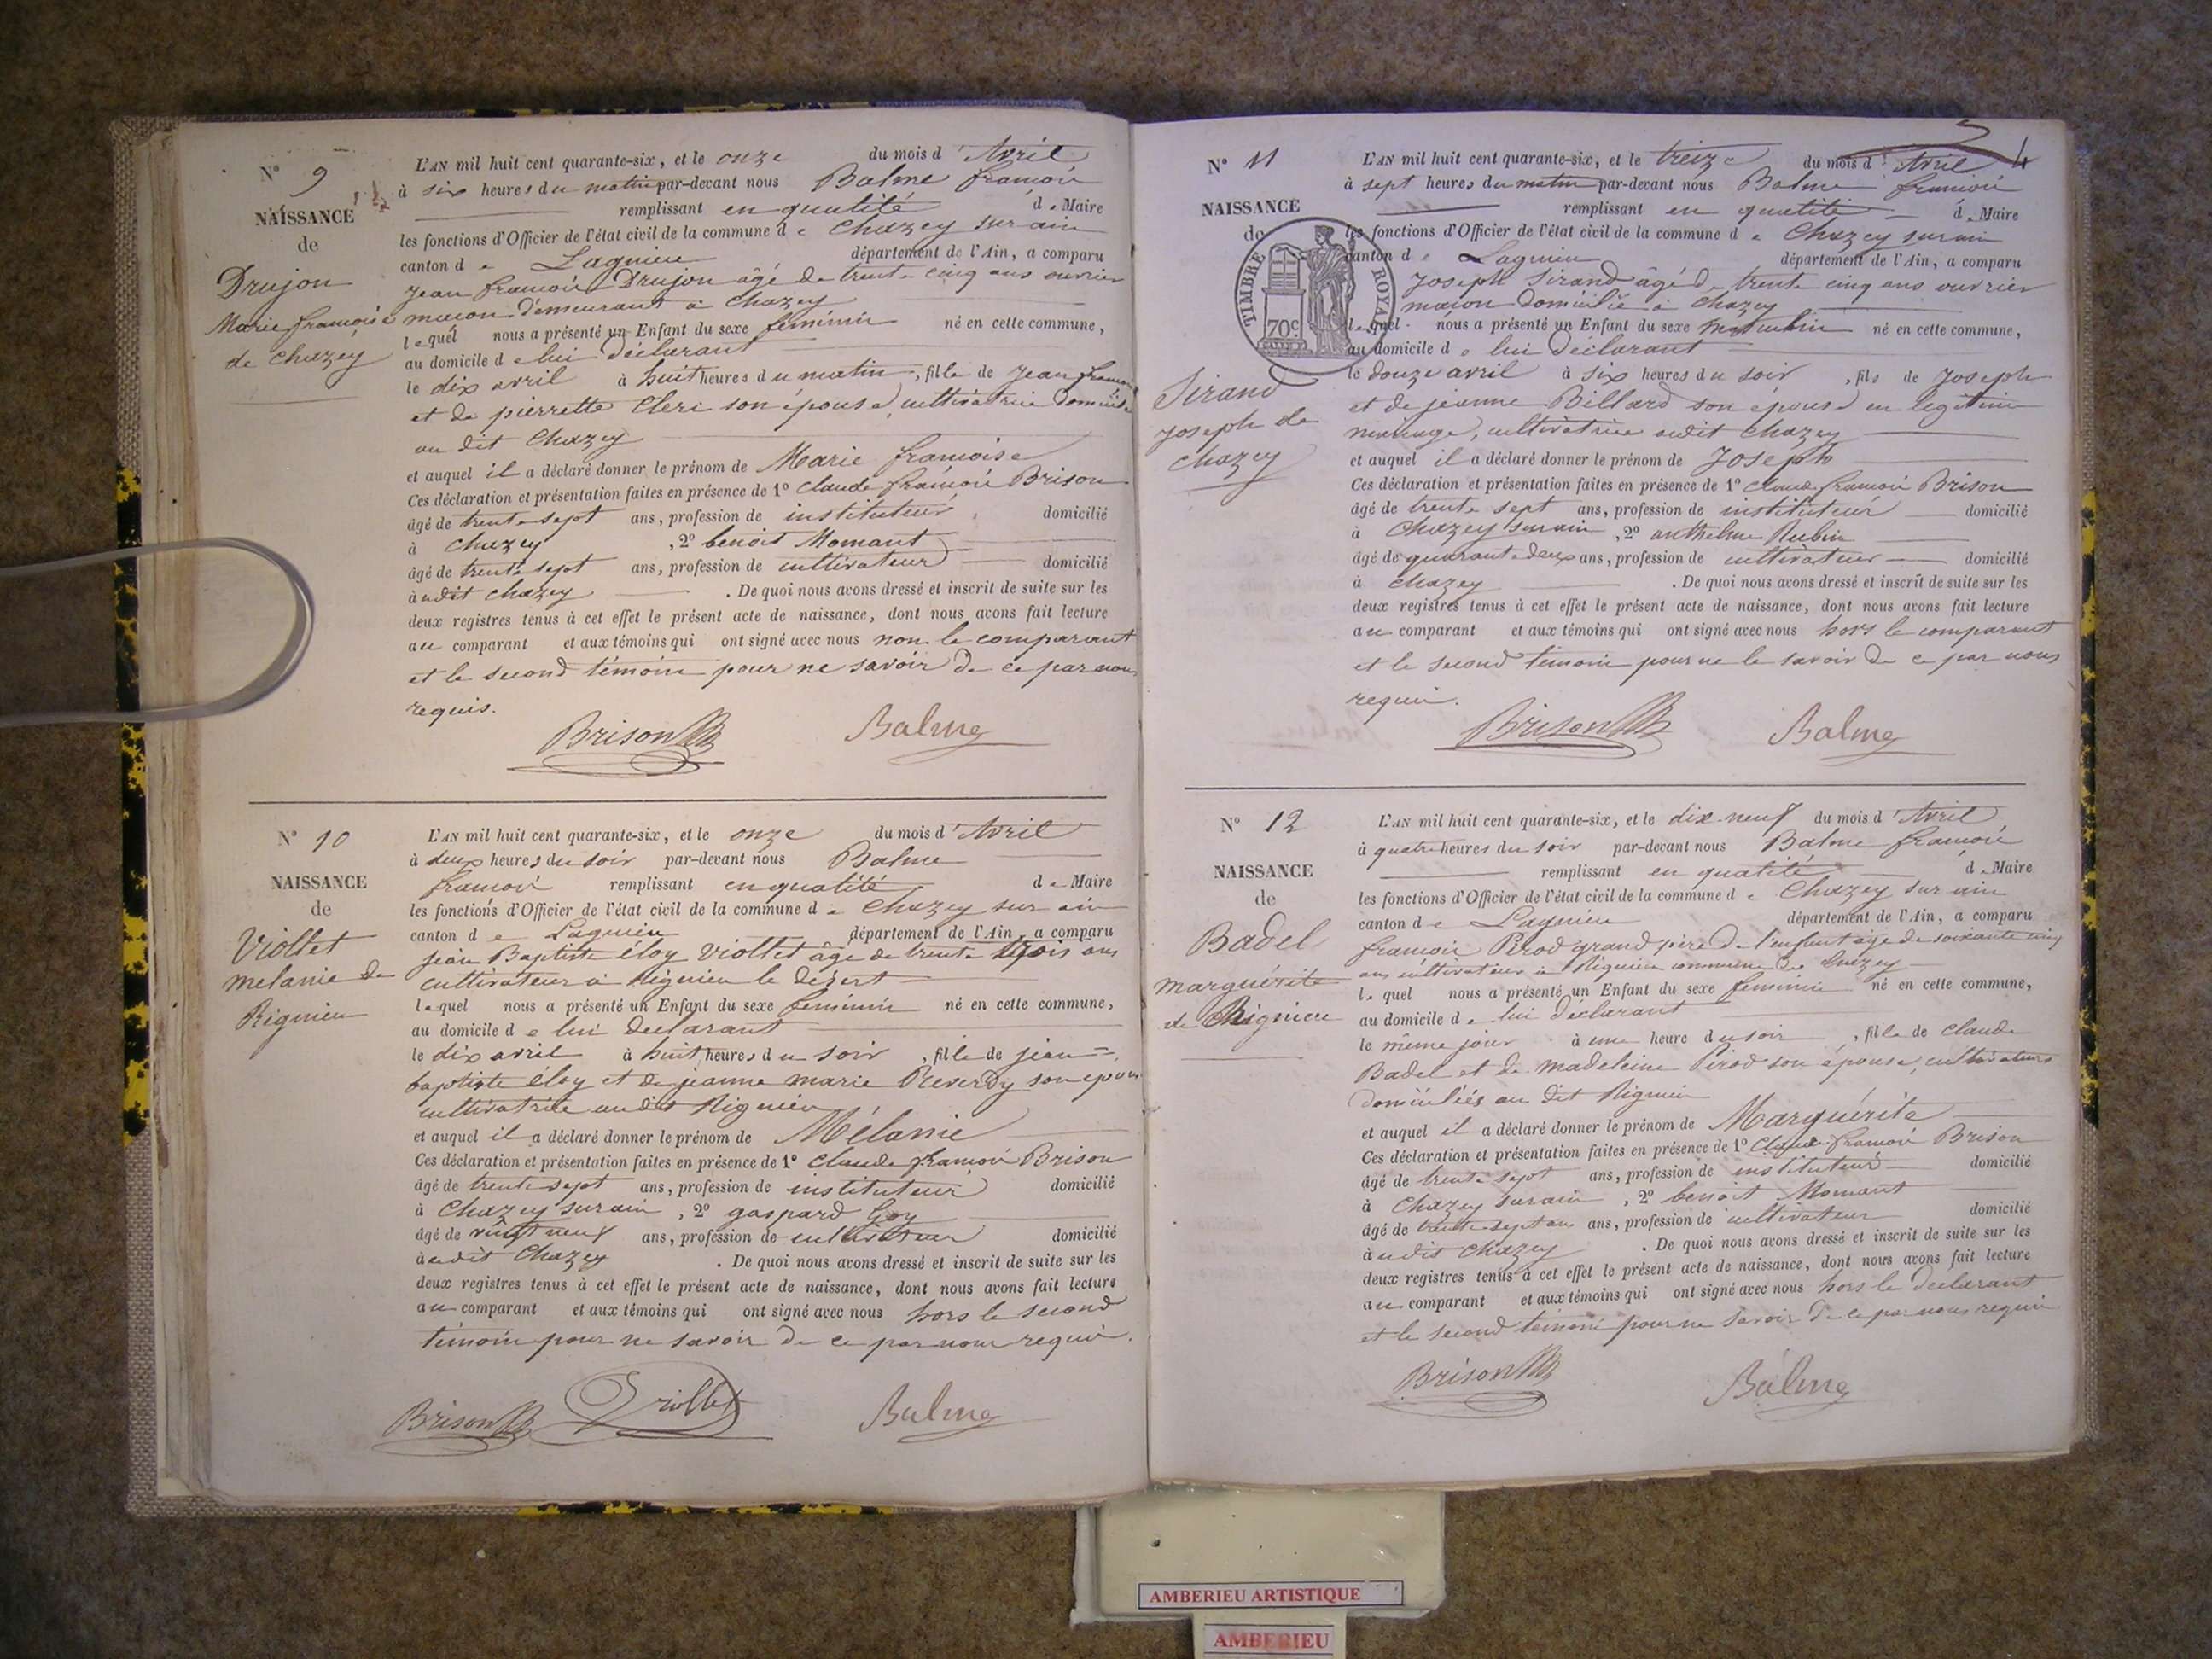 N° 9
NAISSANCE
de
Drujon
Marie françoise
de Chazey
L'AN mil huit cent quarante-six, et le onze du mois d'Avril
à six heures du matin par-devant nous Balme françois
remplissant en qualité de Maire
les fonctions d'Officier de l'état civil de la commune de Chazey sur ain
canton de Lagnieu département de l'Ain, a comparu
jean françois Drujon âgé de trente cinq ans ouvrier
maçon demeurant à Chazey
lequel nous a présenté un Enfant du sexe féminin né en cette commune,
au domicile de lui déclarant
le dix avril à huit heures du matin, fille de jean françois
et de pierrette Cleri son épouse, cultivatrice domiciliée
au dit Chazey
et auquel il a déclaré donner le prénom de Marie françoise
Ces déclaration et présentation faites en présence de 1° Claude françois Brison
âgé de trente sept ans, profession de instituteur domicilié
à Chazey, 2° benoit Momant
âgé de trente sept ans, profession de cultivateur domicilié
à udit chazey. De quoi nous avons dressé et inscrit de suite sur les
deux registres tenus à cet effet le présent acte de naissance, dont nous avons fait lecture
au comparant et aux témoins qui ont signé avec nous non le comparant
et le second témoin pour ne savoir de ce par nous
requis.
Brison Balme
N° 10
NAISSANCE
de
Viollet
melanie de
Rignieu
L'AN mil huit cent quarante-six, et le onze du mois d'Avril
à deux heures du soir par-devant nous Balme
françois remplissant en qualité de Maire
les fonctions d'Officier de l'état civil de la commune de Chazey sur ain
canton de Lagnieu département de l'Ain, a comparu
jean Baptiste éloy Viollet âgé de trente trois ans
cultivateur à Rignieu le désert
lequel nous a présenté un Enfant du sexe feminin né en cette commune,
au domicile de lui declarant
le dix avril à huit heures du soir, fille de jean=
baptiste éloy et de jeanne marie Reverdy son épouse
cultivatrice audit Rignieu
et auquel il a déclaré donner le prénom de Mélanie
Ces déclaration et présentation faites en présence de 1° Claude françois Brison
âgé de trente sept ans, profession de instituteur domicilié
à Chazey surain, 2° gaspard Goy
âgé de vingt neuf ans, profession de cultivateur domicilié
à udit Chazey. De quoi nous avons dressé et inscrit de suite sur les
deux registres tenus à cet effet le présent acte de naissance, dont nous avons fait lecture
au comparant et aux témoins qui ont signé avec nous hors le second
témoin pour ne savoir de ce par nous requis.
Brison Viollet Balme
4
N° 11
NAISSANCE
de
TIMBRE ROYAL
70c
Sirand
joseph de
Chazey
L'AN mil huit cent quarante-six, et le treize du mois d'Avril
à sept heures du matin par-devant nous Balme françois
remplissant en qualité de Maire
les fonctions d'Officier de l'état civil de la commune de Chazey surain
canton de Lagnieu département de l'Ain, a comparu
Joseph Sirand âgé de trente cinq ans ouvrier
maçon domicilié à Chazey
lequel nous a présenté un Enfant du sexe masculin né en cette commune,
au domicile de lui déclarant
le douze avril à six heures du soir, fils de Joseph
et de jeanne Billard son épouse en legitime
mariage, cultivatrice audit chazey
et auquel il a déclaré donner le prénom de Joseph
Ces déclaration et présentation faites en présence de 1° Claude françois Brison
âgé de trente sept ans, profession de instituteur domicilié
à Chazey surain, 2° anthelme Rubin
âgé de quarante deux ans, profession de cultivateur domicilié
à chazey. De quoi nous avons dressé et inscrit de suite sur les
deux registres tenus à cet effet le présent acte de naissance, dont nous avons fait lecture
au comparant et aux témoins qui ont signé avec nous hors le comparant
et le second témoin pour ne le savoir de ce par nous
requis.
Brison Balme
N° 12
NAISSANCE
de
Badel
marguérite
de Rignieu
L'AN mil huit cent quarante-six, et le dix-neuf du mois d'Avril
à quatre heures du soir par-devant nous Balme françois
remplissant en qualité de Maire
les fonctions d'Officier de l'état civil de la commune de Chazey sur ain
canton de Lagnieu département de l'Ain, a comparu
françois Pirod grand père de l'enfant âgé de soixante cinq
ans cultivateur à Rignieu commune de Chazey
lequel nous a présenté un Enfant du sexe feminin né en cette commune,
au domicile de lui déclarant
le même jour à une heure du soir, fille de Claude
Badel et de madeleine Pirod son épouse, cultivateurs
domiciliés au dit Rignieu
et auquel il a déclaré donner le prénom de Marguérite
Ces déclaration et présentation faites en présence de 1° Claude françois Brison
âgé de trente sept ans, profession de instituteur domicilié
à Chazey surain, 2° benoit Momant
âgé de trente sept ans ans, profession de cultivateur domicilié
à udit Chazey. De quoi nous avons dressé et inscrit de suite sur les
deux registres tenus à cet effet le présent acte de naissance, dont nous avons fait lecture
au comparant et aux témoins qui ont signé avec nous hors le declarant
et le second témoin pour ne savoir de ce par nous requis
Brison Balme
AMBERIEU ARTISTIQUE
AMBERIEU